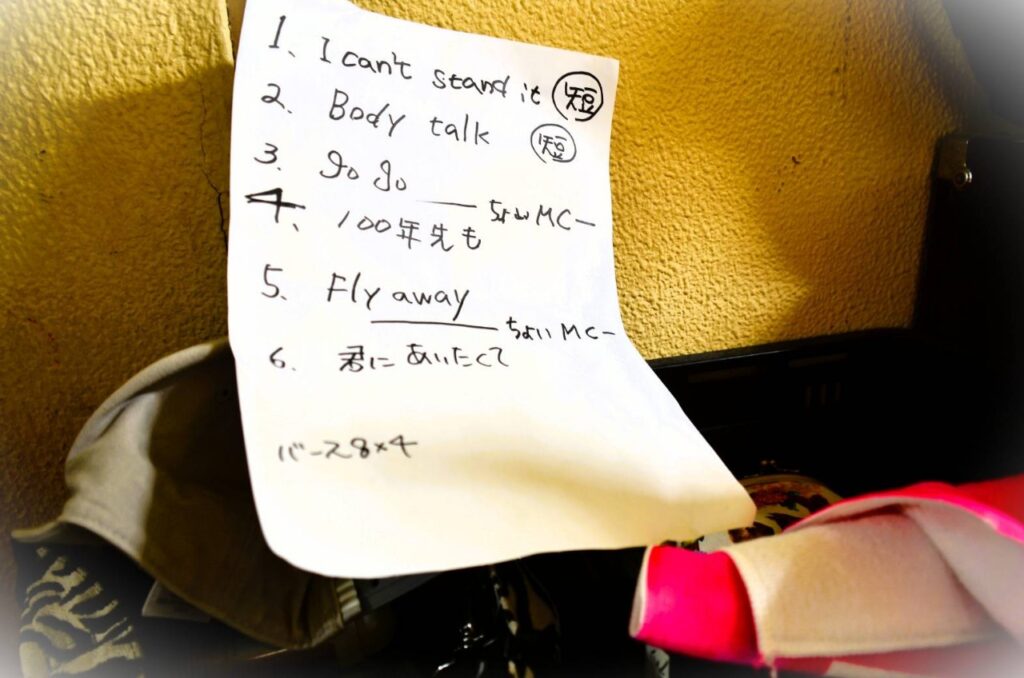 1、 I can't stand it 短
2、 Body talk 短
3、 go go
ちょいMCー
4、 100年先も
5、 Fly away
ちょいMCー
6、 君にあいたくて
バース8×4